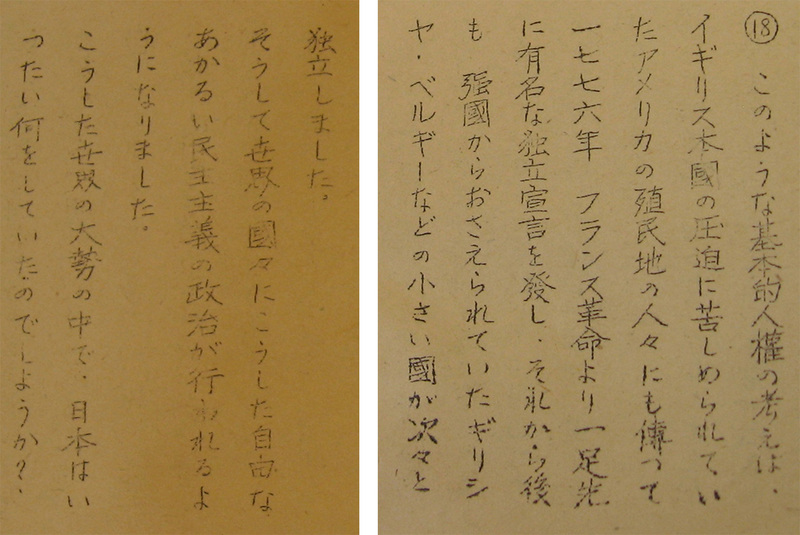 ⑱　このような基本的人權の考えは、
イギリス本國の圧迫に苦しめられてい
たアメリカの殖民地の人々にも傳つて
一七七六年　フランス革命より一足先
に有名な独立宣言を發し、それから後
も　强國からおさえられていたギリシ
ヤ・ベルギーなどの小さい國が次々と
独立しました。
そうして世界の國々にこうした自由な
あかるい民主主義の政治が行われるよ
うになりました。
こうした世界の大勢の中で、日本はい
つたい何をしていたのでしようか？、